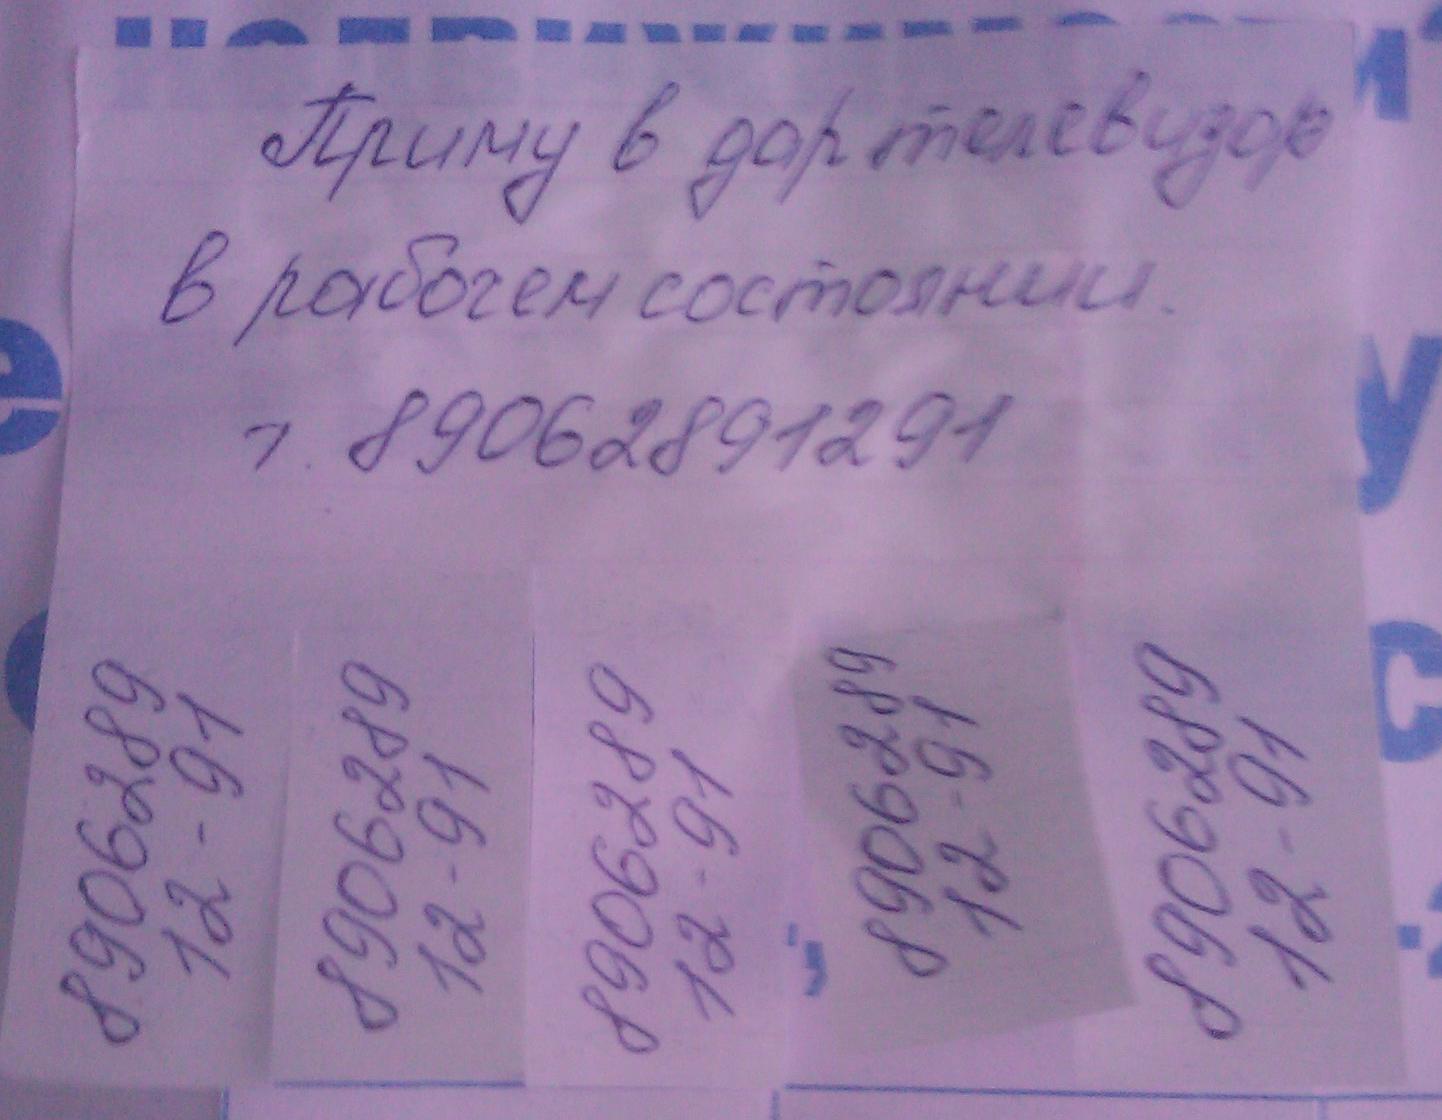 Приму в дар телевизор
в рабочем состоянии.
т. 89062891291
8906289
12-91
8906289
12-91
8906289
12-91
8906289
12-91
8906289
12-91